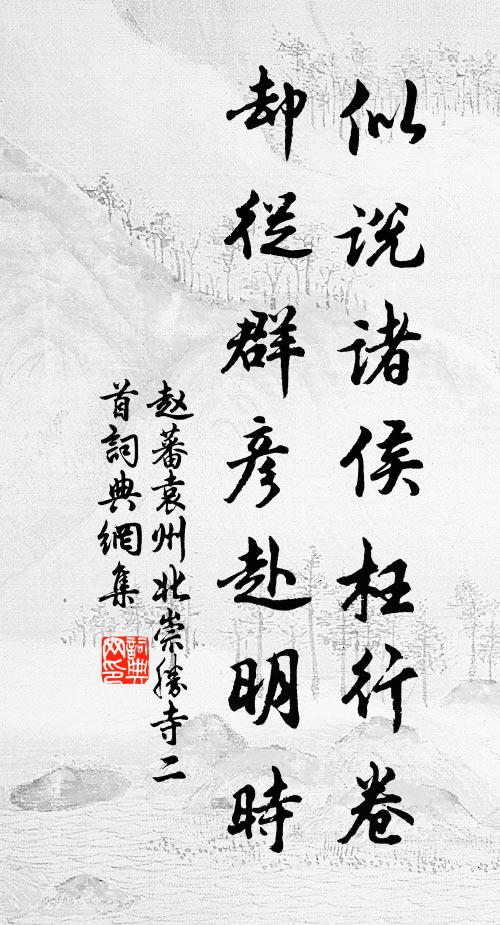 似说诸侯枉行卷
却從群彦赴明時
赵蕃袁州北崇勝寺二
首詞典網集
詞典网印